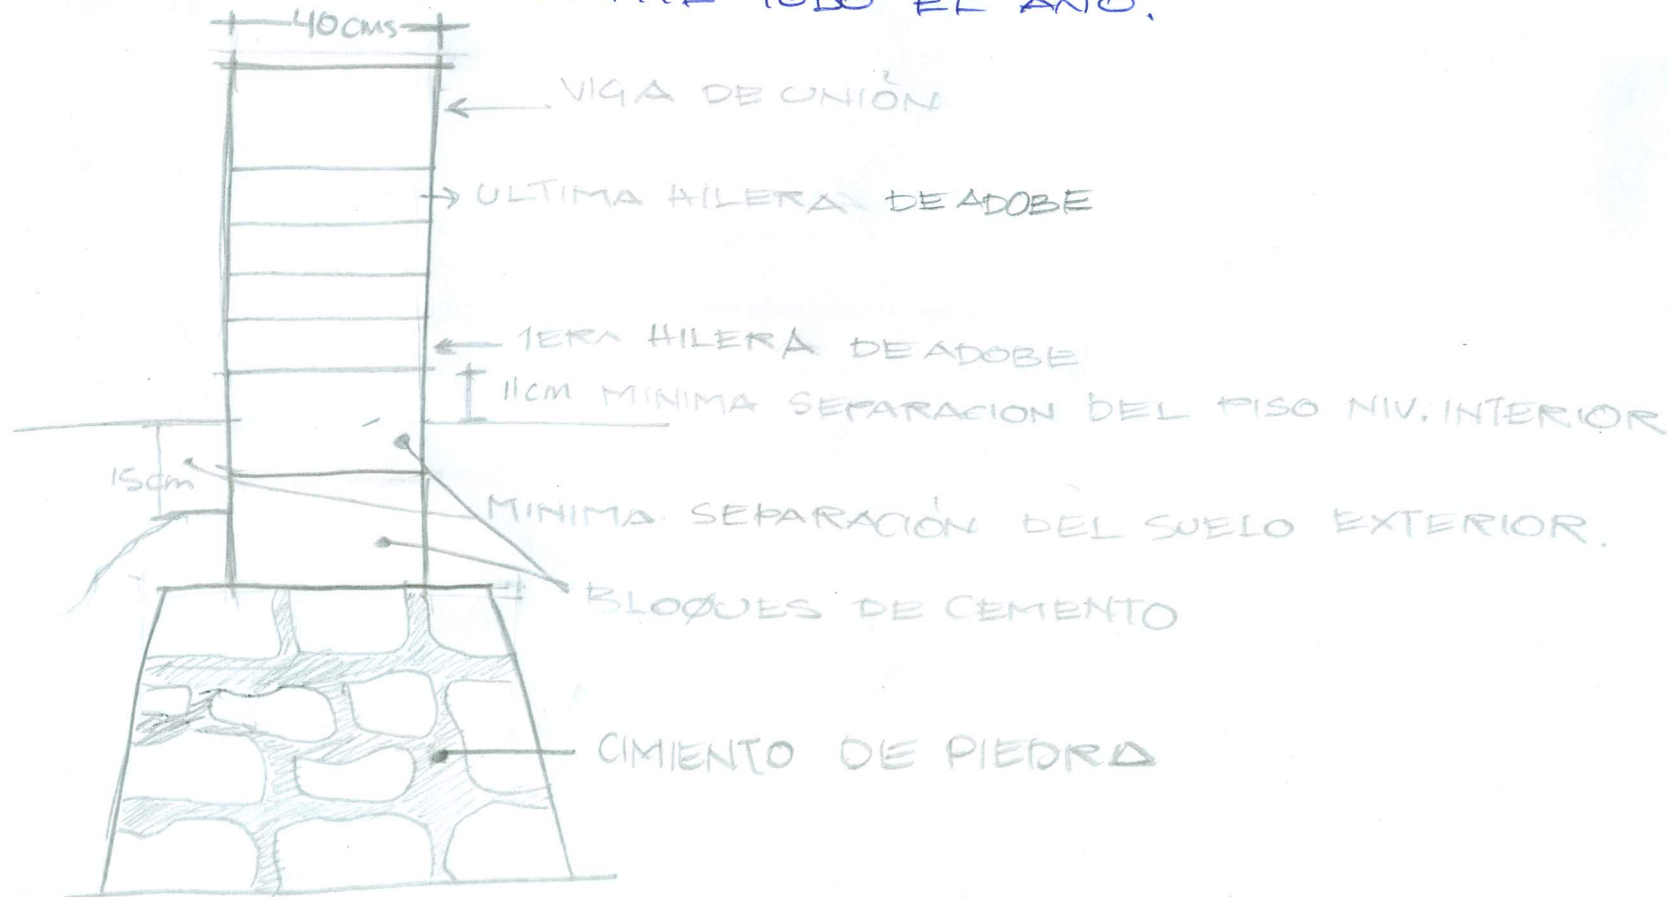 TODO EL AÑO.
40cms
VIGA DE UNIÓN
ULTIMA HILERA DE ADOBE
1ERA HILERA DE ADOBE
11cm MINIMA SEPARACION DEL PISO NIV. INTERIOR
15cm
MINIMA SEPARACIÓN DEL SUELO EXTERIOR.
BLOQUES DE CEMENTO
CIMIENTO DE PIEDRA